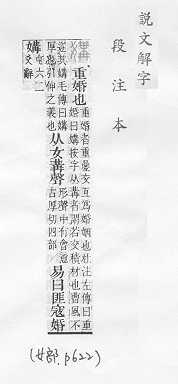 說文解字
段注本
媾 重婚也 重婚者重疊交互爲婚姻也杜注左傳曰重
婚曰媾按字从冓者謂若交積材也曹風不
遂其媾毛傳曰媾
厚也引伸之義也 从女冓聲 形聲中有會意
古厚切四部 易曰匪寇婚
媾 屯六二
爻辭
(女部. p622)